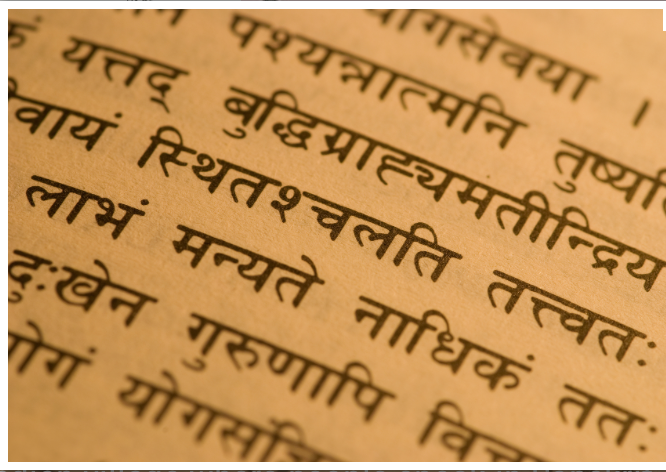 योगसेवया ।
पश्यन्नात्मनि तुष्यति
कं यत्तद् बुद्धिग्राह्यमतीन्द्रिय
वायं स्थितश्चलति तत्त्वतः
लाभं मन्यते नाधिकं ततः
दुःखेन गुरुणापि विच
योगं योगसंज्ञि